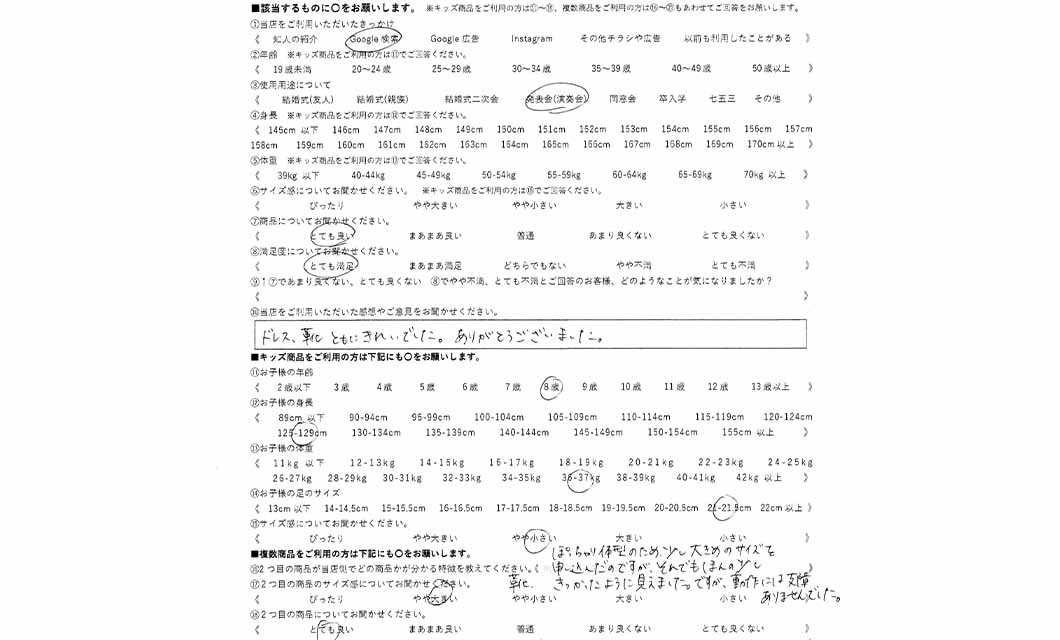 ■該当するものに〇をお願いします。 ※キッズ商品をご利用の方は⑪～⑮、複数商品をご利用の方は⑯～⑳もあわせてご回答をお願いします。
①当店をご利用いただいたきっかけ
《 知人の紹介 Google 検索 Google 広告 Instagram その他チラシや広告 以前も利用したことがある 》
②年齢 ※キッズ商品をご利用の方は⑪でご回答ください。
《 19歳未満 20～24歳 25～29歳 30～34歳 35～39歳 40～49歳 50歳以上 》
③使用用途について
《 結婚式(友人) 結婚式(親族) 結婚式二次会 発表会(演奏会) 同窓会 卒入学 七五三 その他 》
④身長 ※キッズ商品をご利用の方は⑫でご回答ください。
《 145cm 以下 146cm 147cm 148cm 149cm 150cm 151cm 152cm 153cm 154cm 155cm 156cm 157cm
158cm 159cm 160cm 161cm 162cm 163cm 164cm 165cm 166cm 167cm 168cm 169cm 170cm以上 》
⑤体重 ※キッズ商品をご利用の方は⑬でご回答ください。
《 39kg 以下 40-44kg 45-49kg 50-54kg 55-59kg 60-64kg 65-69kg 70kg 以上 》
⑥サイズ感についてお聞かせください。 ※キッズ商品をご利用の方は⑮でご回答ください。
《 ぴったり やや大きい やや小さい 大きい 小さい 》
⑦商品についてお聞かせください。
《 とても良い まあまあ良い 普通 あまり良くない とても良くない 》
⑧満足度についてお聞かせください。
《 とても満足 まあまあ満足 どちらでもない やや不満 とても不満 》
⑨1⑦であまり良くない、とても良くない ⑧でやや不満、とても不満とご回答のお客様、どのようなことが気になりましたか？
《 》
⑩当店をご利用いただいた感想やご意見をお聞かせください。
ドレス、靴 ともにきれいでした。ありがとうございました。
■キッズ商品をご利用の方は下記にも〇をお願いします。
⑪お子様の年齢
《 2歳以下 3歳 4歳 5歳 6歳 7歳 8歳 9歳 10歳 11歳 12歳 13歳以上 》
⑫お子様の身長
《 89cm 以下 90-94cm 95-99cm 100-104cm 105-109cm 110-114cm 115-119cm 120-124cm
125-129cm 130-134cm 135-139cm 140-144cm 145-149cm 150-154cm 155cm 以上 》
⑬お子様の体重
《 11kg 以下 12-13kg 14-15kg 16-17kg 18-19kg 20-21kg 22-23kg 24-25kg
26-27kg 28-29kg 30-31kg 32-33kg 34-35kg 36-37kg 38-39kg 40-41kg 42kg以上 》
⑭お子様の足のサイズ
《 13cm以下 14-14.5cm 15-15.5cm 16-16.5cm 17-17.5cm 18-18.5cm 19-19.5cm 20-20.5cm 21-21.5cm 22cm以上 》
⑮サイズ感についてお聞かせください。
《 ぴったり やや大きい やや小さい 大きい 小さい 》
■複数商品をご利用の方は下記にも〇をお願いします。 ぽっちゃり体型のため、少し大きめのサイズを
⑯2つ目の商品が当店側でどの商品かが分かる特徴を教えてください。《 申し込んだのですが、それでもほんの少し
⑰2つ目の商品のサイズ感についてお聞かせください。 靴、 きつかったように見えました。ですが、動作には支障
《 ぴったり やや大きい やや小さい 大きい 小さい ありませんでした。
⑱2つ目の商品についてお聞かせください。
《 とても良い まあまあ良い 普通 あまり良くない とても良くない 》